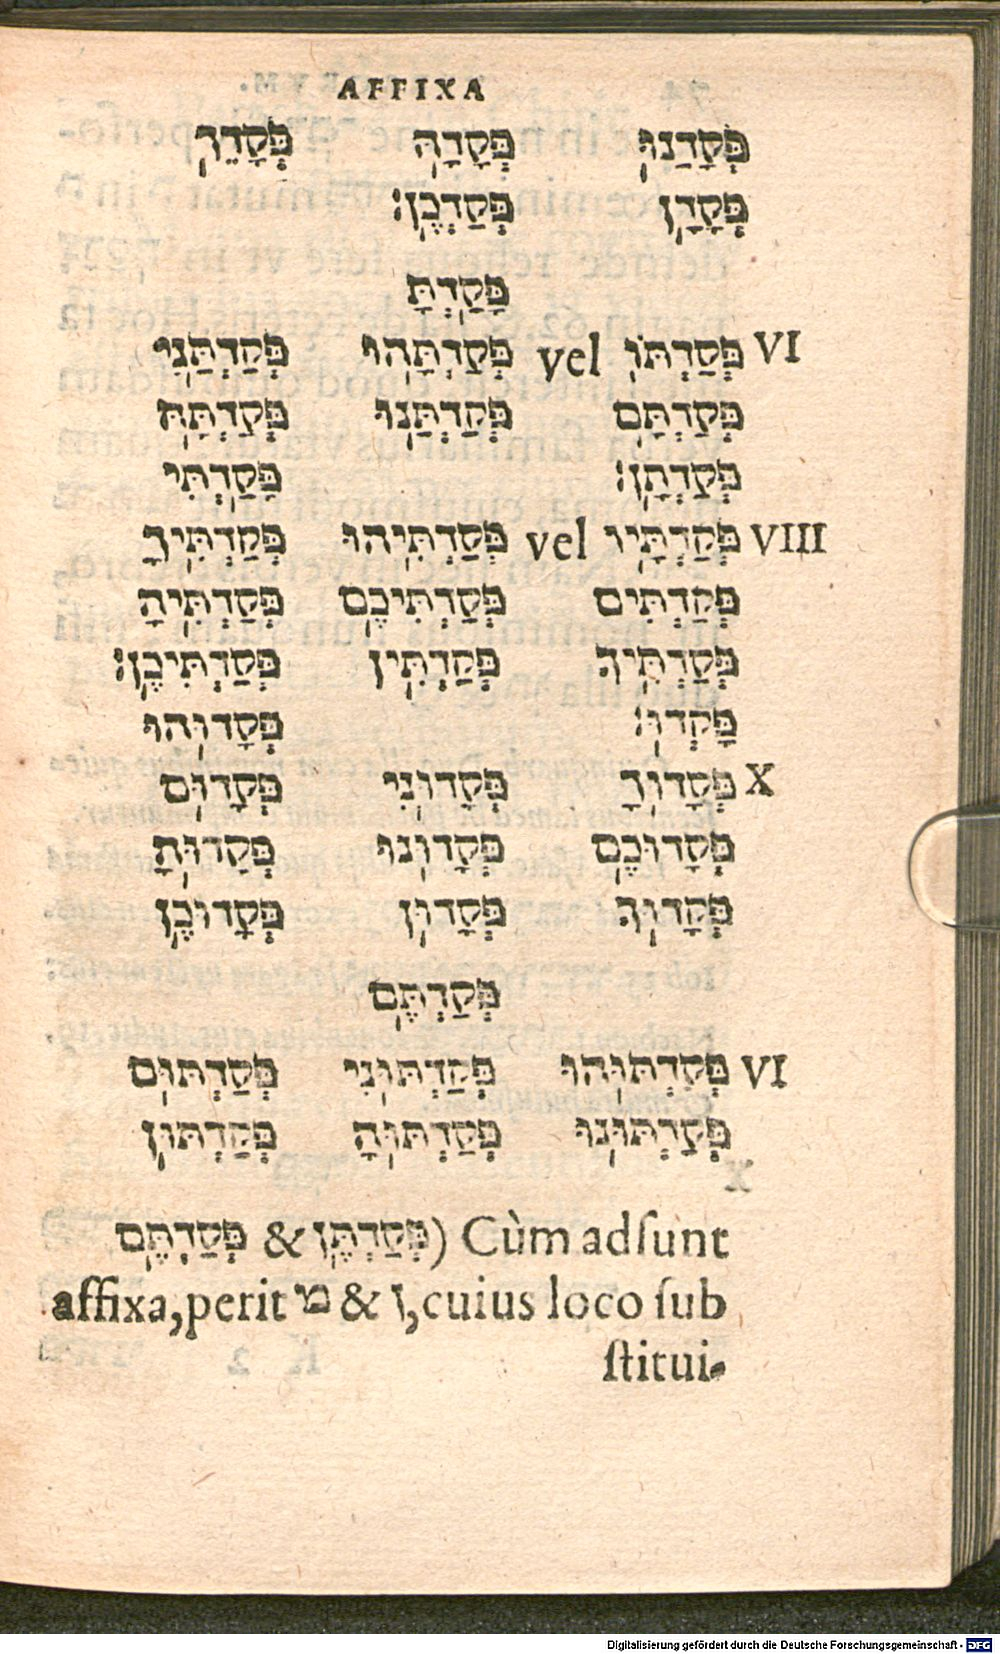 AFFIXA
פְּקָדַנוּ פְּקָדָהּ פְּקָדֵךְ
פְּקָדָן פְּקַדְכֶן׃
פָּקַדְתָּ
VI פְּקַדְתּוֹ vel פְּקַדְתָּהוּ פְּקַדְתַּנִי
פְּקַדְתָּם פְּקַדְתַּנוּ פְּקַדְתָּהּ
פְּקַדְתָּן׃ פָּקַדְתִּי
VIII פְּקַדְתִּיו vel פְּקַדְתִּיהוּ פְּקַדְתִּיךָ
פְּקַדְתִּים פְּקַדְתִּיכֶם פְּקַדְתִּיהָ
פְּקַדְתִּיךְ פְּקַדְתִּין פְּקַדְתִּיכֶן׃
פָּקְדוּ׃ פְּקָדוּהוּ
X פְּקָדוּךָ פְּקָדוּנִי פְּקָדוּם
פְּקָדוּכֶם פְּקָדוּנוּ פְּקָדוּהָ
פְּקָדוּךְ פְּקָדוּן פְּקָדוּכֶן
פְּקַדְתֶּם
VI פְּקַדְתּוּהוּ פְּקַדְתּוּנִי פְּקַדְתּוּם
פְּקַדְתּוּנוּ פְּקַדְתּוּהָ פְּקַדְתּוּן
X
פְּקַדְתֶּם & פְּקַדְתֶּן) Cùm adſunt
affixa, perit מ & ן, cuius loco ſub
ſtitui-
Digitalisierung gefördert durch die Deutsche Forschungsgemeinschaft - DFG